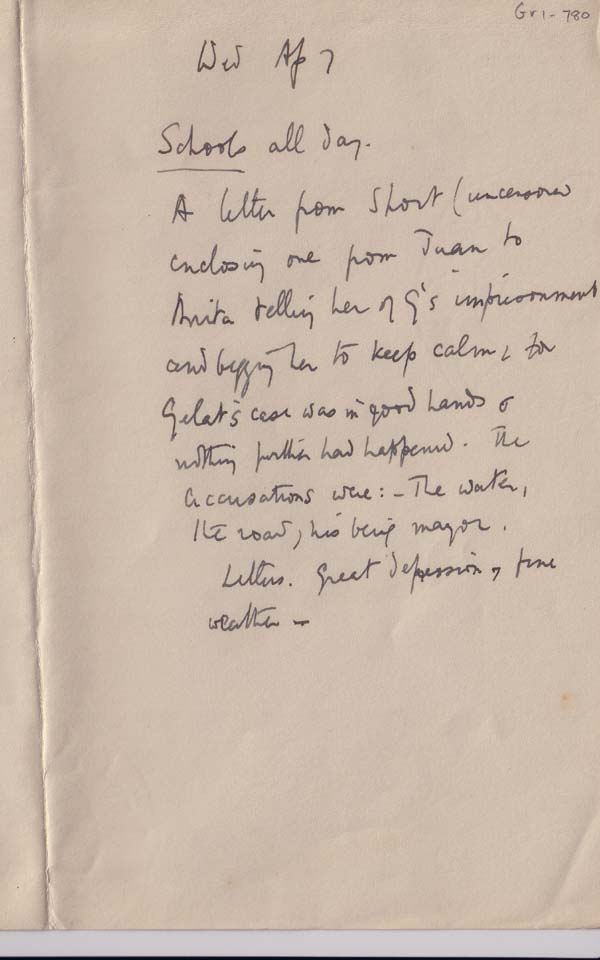 Gv1-780
Wed Ap 7
Schools all day.
A letter from Short (uncensored
enclosing one from Juan to
Anita telling her of G's imprisonment
and begging her to keep calm, for
Gelat's case was in good hands &
nothing further had happened. The
accusations were: - The water,
the road, his being mayor.
Letters. Great depression, fine
weather -